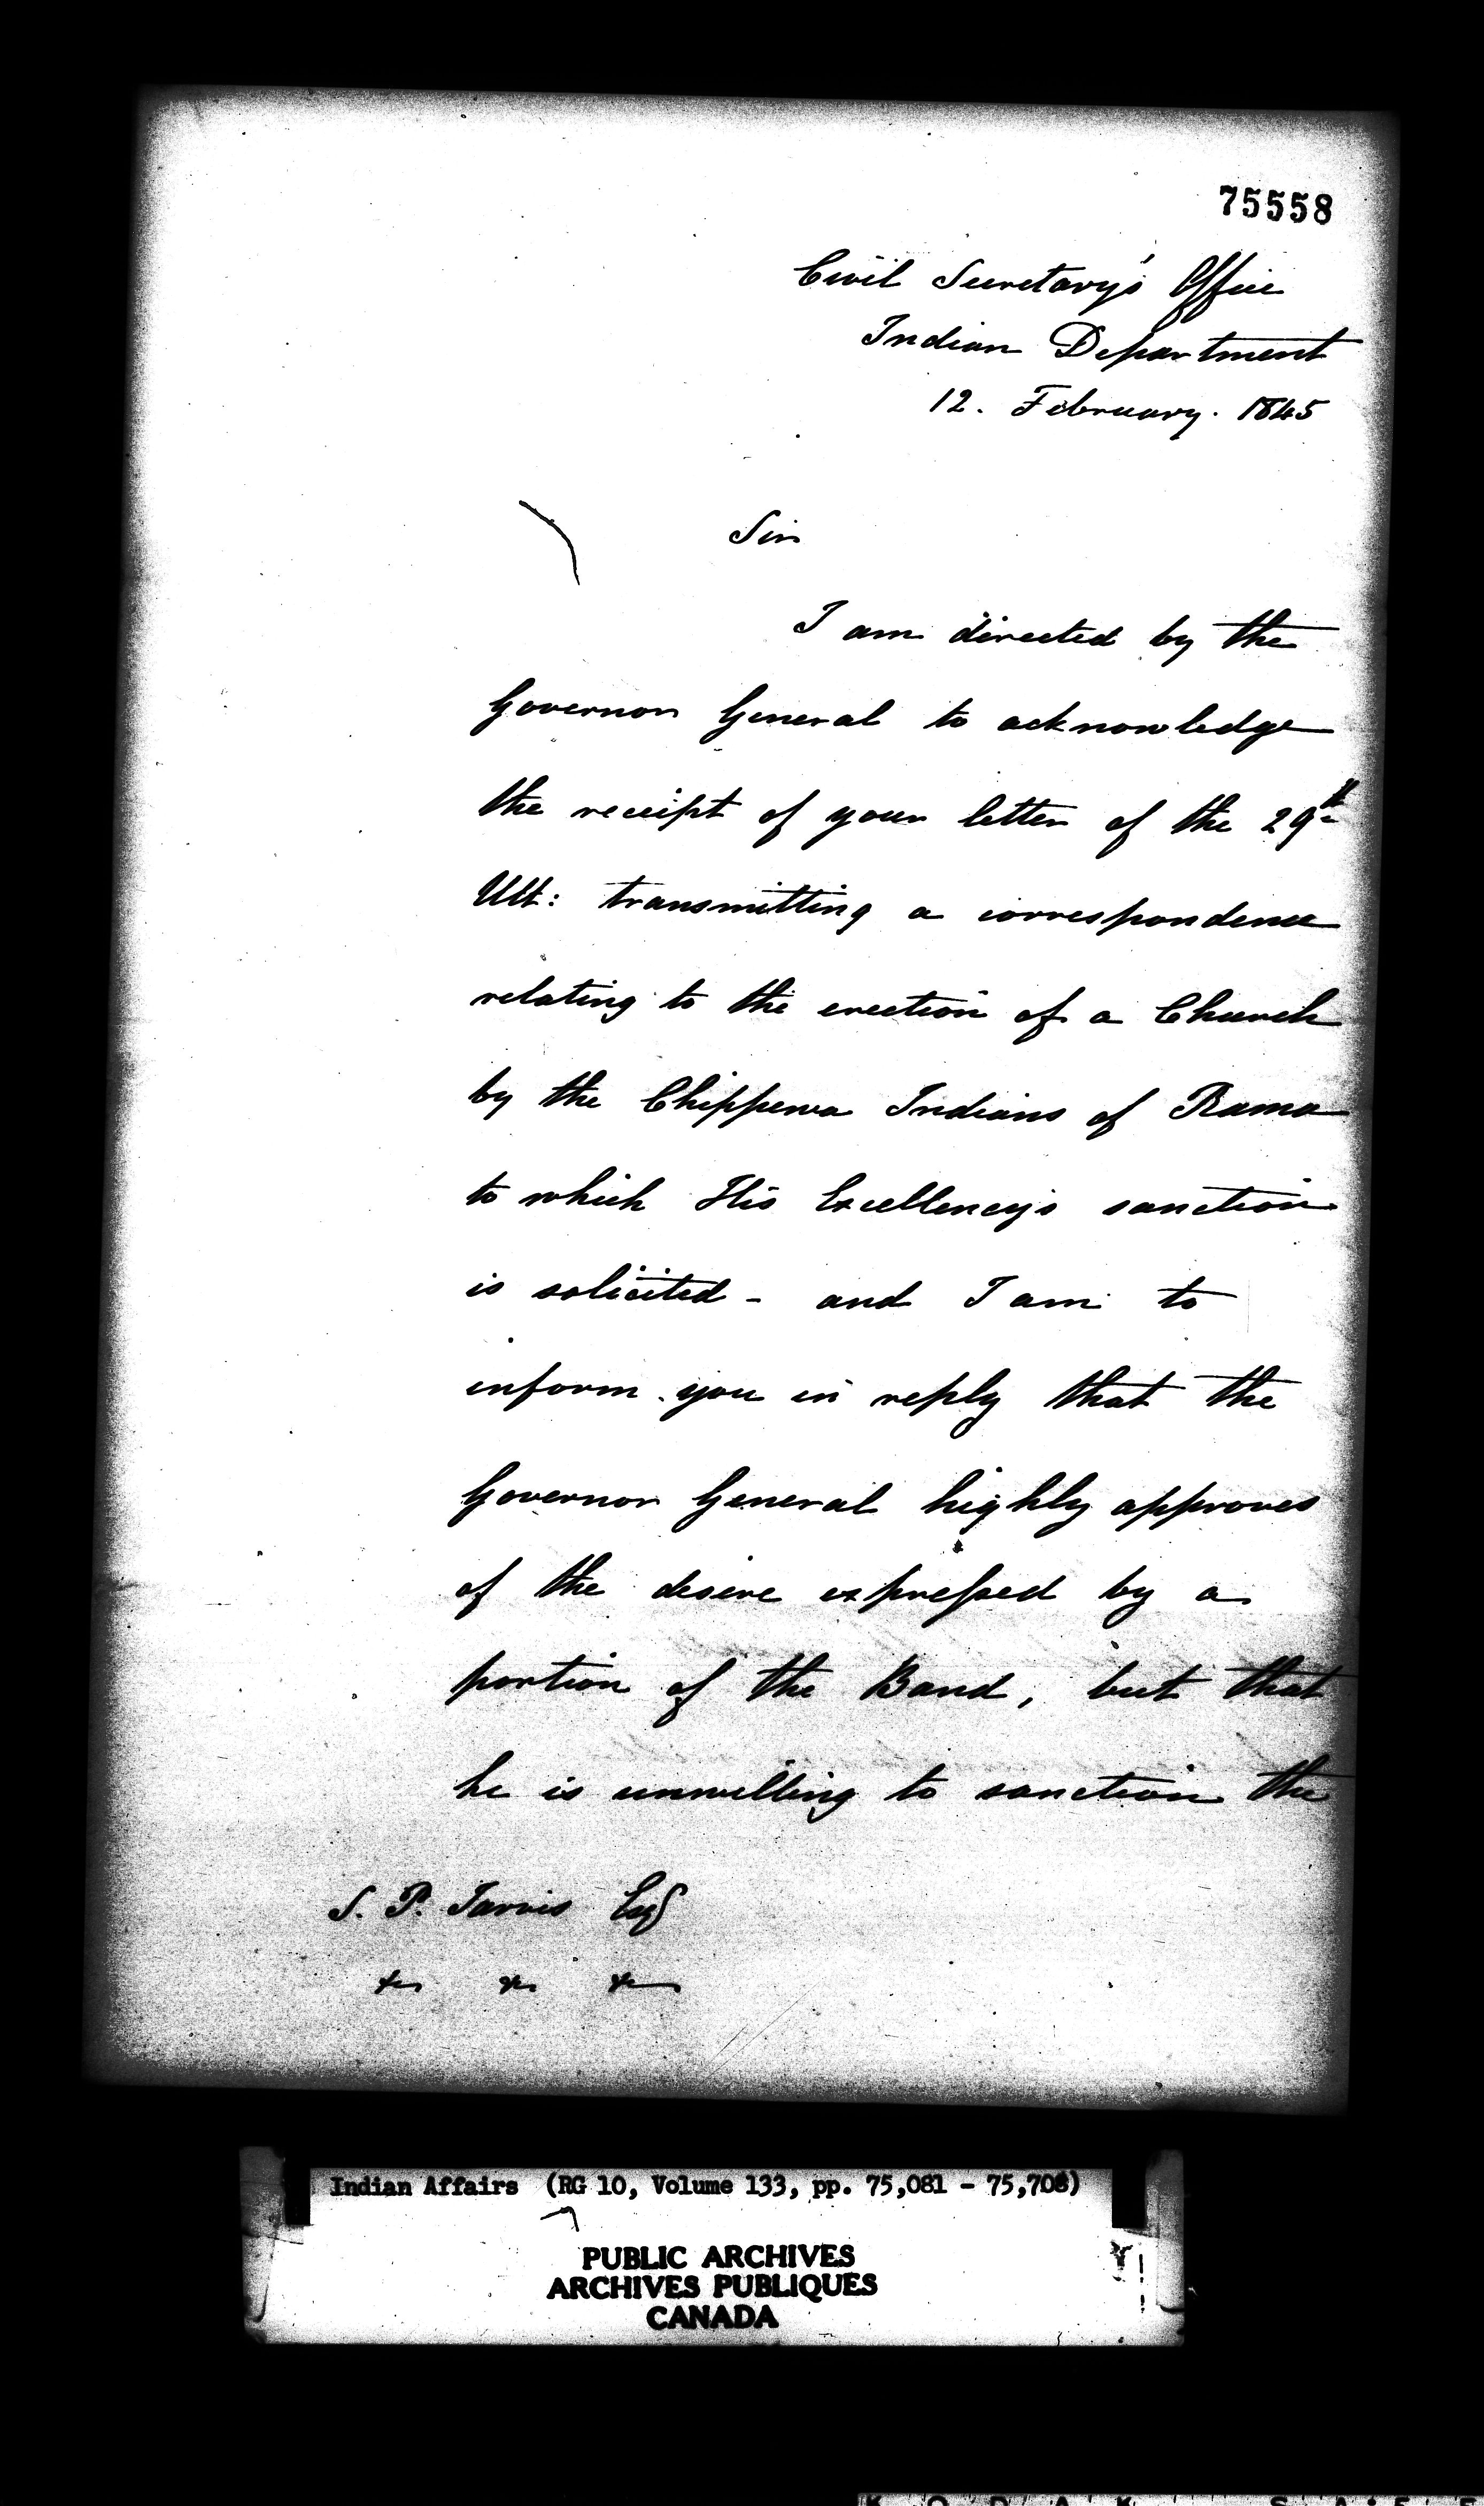 75558
Civil Secretary's Office
Indian Department
12. February. 1845
Sir
I am directed by the
Governor General to acknowledge
the receipt of your letter of the 29th
Ult: transmitting a correspondence
relating to the erection of a Church
by the Chippewa Indians of Rama
to which His Excellency's sanction
is solicited - and I am to
inform you in reply that the
Governor General highly approves
of the desire expressed by a
portion of the Band, but that
he is unwilling to sanction the
S. P. Jarvis Esq
&c &c &c
Indian Affairs (RG 10, Volume 133, pp. 75,081 - 75,708)
PUBLIC ARCHIVES
ARCHIVES PUBLIQUES
CANADA
KODAK SAFE